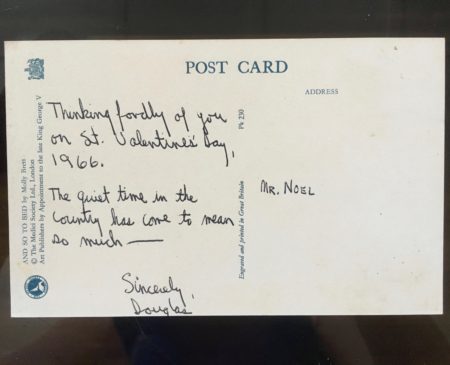 POST CARD
ADDRESS
Thinking fondly of you
on St. Valentine's Day,
1966.
The quiet time in the
country has come to mean
so much —
Sincerely,
Douglas
MR. NOEL
AND SO TO BED by Molly Brett
© The Medici Society Ltd., London
Art Publishers by Appointment to the late King George V
Pk 230
Engraved and printed in Great Britain